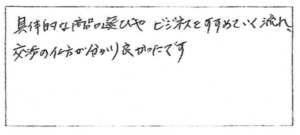 具体的な商品選びや ビジネスをすすめていく流れ、
交渉の仕方が分かり良かったです